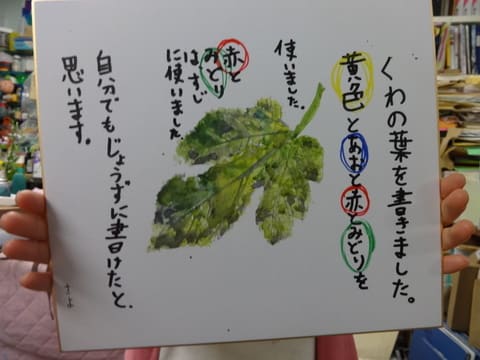 くわの葉を書きました。
黄色とあおと赤とみどりを
使いました。
赤と
みどり
はすじ
に使いました
自分でもじょうずに書けたと、
思います。